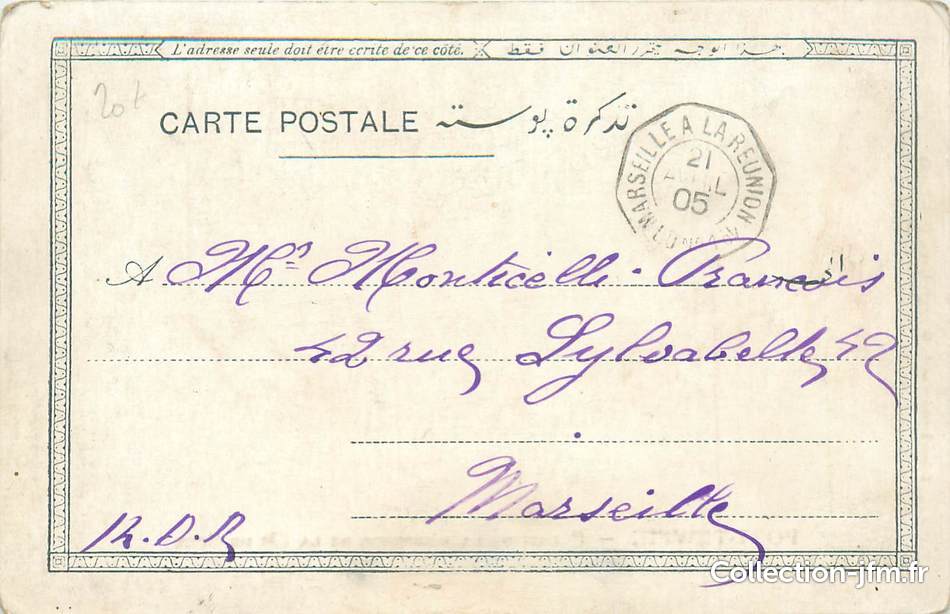 L'adresse seule doit être écrite de ce côté. هذا الوجه محرر العنوان فقط
20 f
CARTE POSTALE تذكرة پوسته
MARSEILLE A LA REUNION
21
AVRIL
05
A Mr. Monticelli François
42 rue Sylvabelle 42
Marseille
R.D.R
Collection-jfm.fr